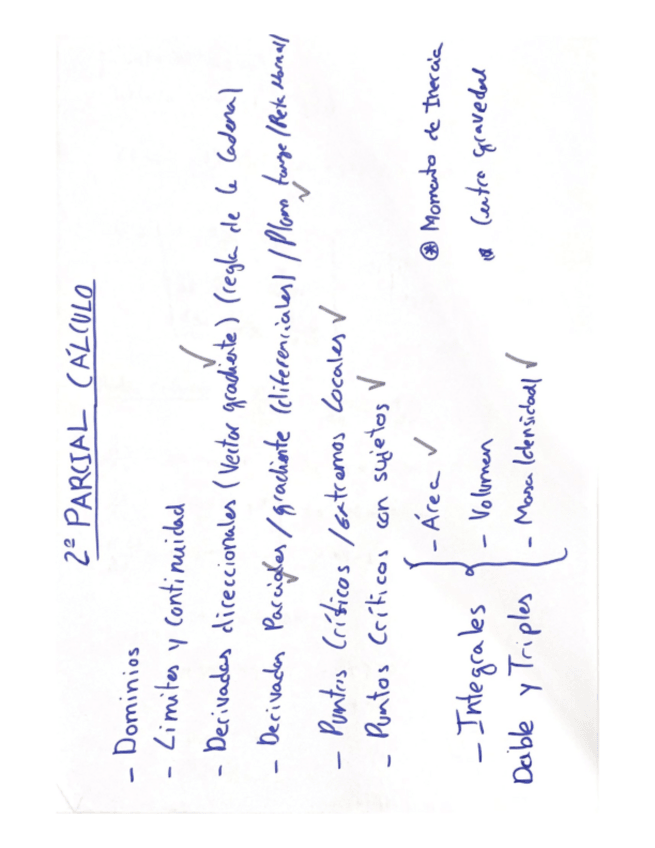 2º PARCIAL CÁLCULO
- Dominios
- Límites y continuidad
- Derivadas direccionales (Vector gradiente) (regla de la Cadena)
- Derivadas Parciales / gradiente (diferenciales) / Plano tange / Rekt Normal
- Puntos Críticos / extremos Locales
- Puntos Críticos con sujetos
- Integrales Doble y Triples
- Área
- Volumen
- Masa (densidad)
* Momento de Inercia
* Centro gravedad